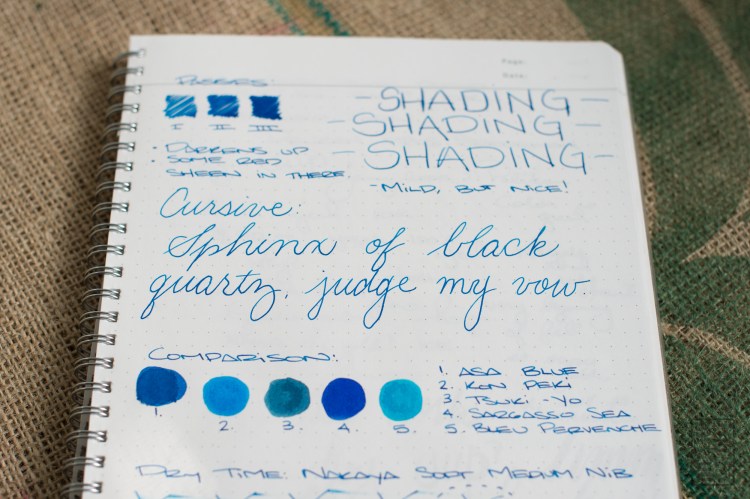 Page:
Date:
PASSES:
I II III
-SHADING-
-SHADING-
-SHADING-
-MILD, BUT NICE!
• DARKENS UP
• SOME RED
SHEEN IN THERE.
Cursive:
Sphinx of black
quartz, judge my vow.
COMPARISON:
1. 2. 3. 4. 5.
1. ASA BLUE
2. KON PEKI
3. TSUKI-YO
4. SARGASSO SEA
5. BLEU PERVENCHE
DRY TIME: NAKAYA SOFT MEDIUM NIB